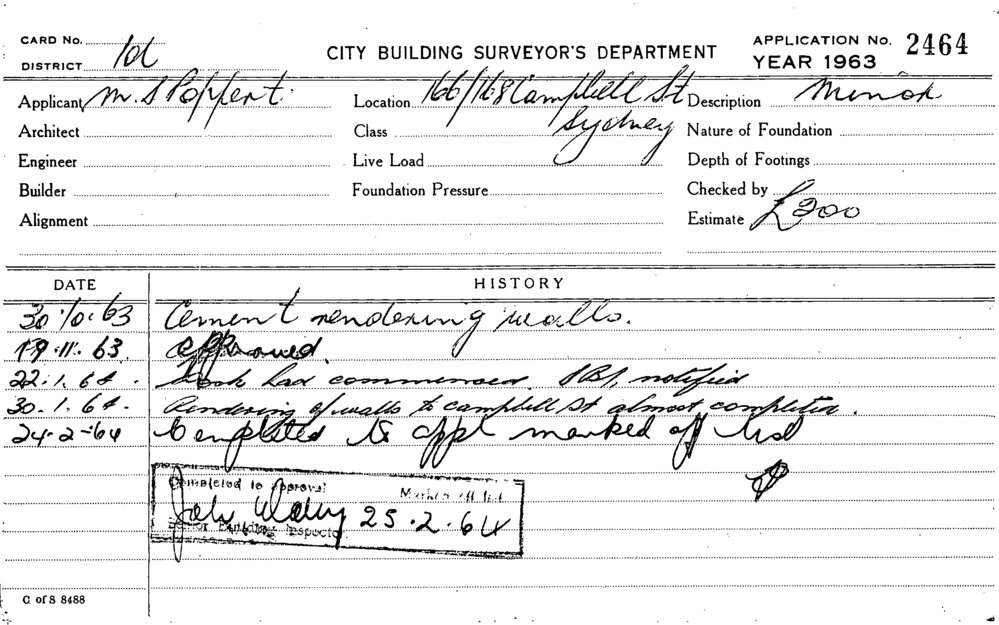 CARD No.
CITY BUILDING SURVEYOR'S DEPARTMENT
APPLICATION No. 2464
DISTRICT
YEAR 1963
Applicant M. S Poppert
Location 166/168 Campbell St
Sydney
Description Minor
Architect
Class
Nature of Foundation
Engineer
Live Load
Depth of Footings
Builder
Foundation Pressure
Checked by
Alignment
Estimate £200
DATE
HISTORY
30.10.63 Cement rendering walls.
19.11.63. approved.
22.1.64. Work had commenced. notified
30.1.64. Rendering of walls to Campbell St almost completed.
24-2-64 Completed to appl marked off list
Completed to approval
Marked off list
John 25.2.64
Senior Building Inspector
C of S 8488